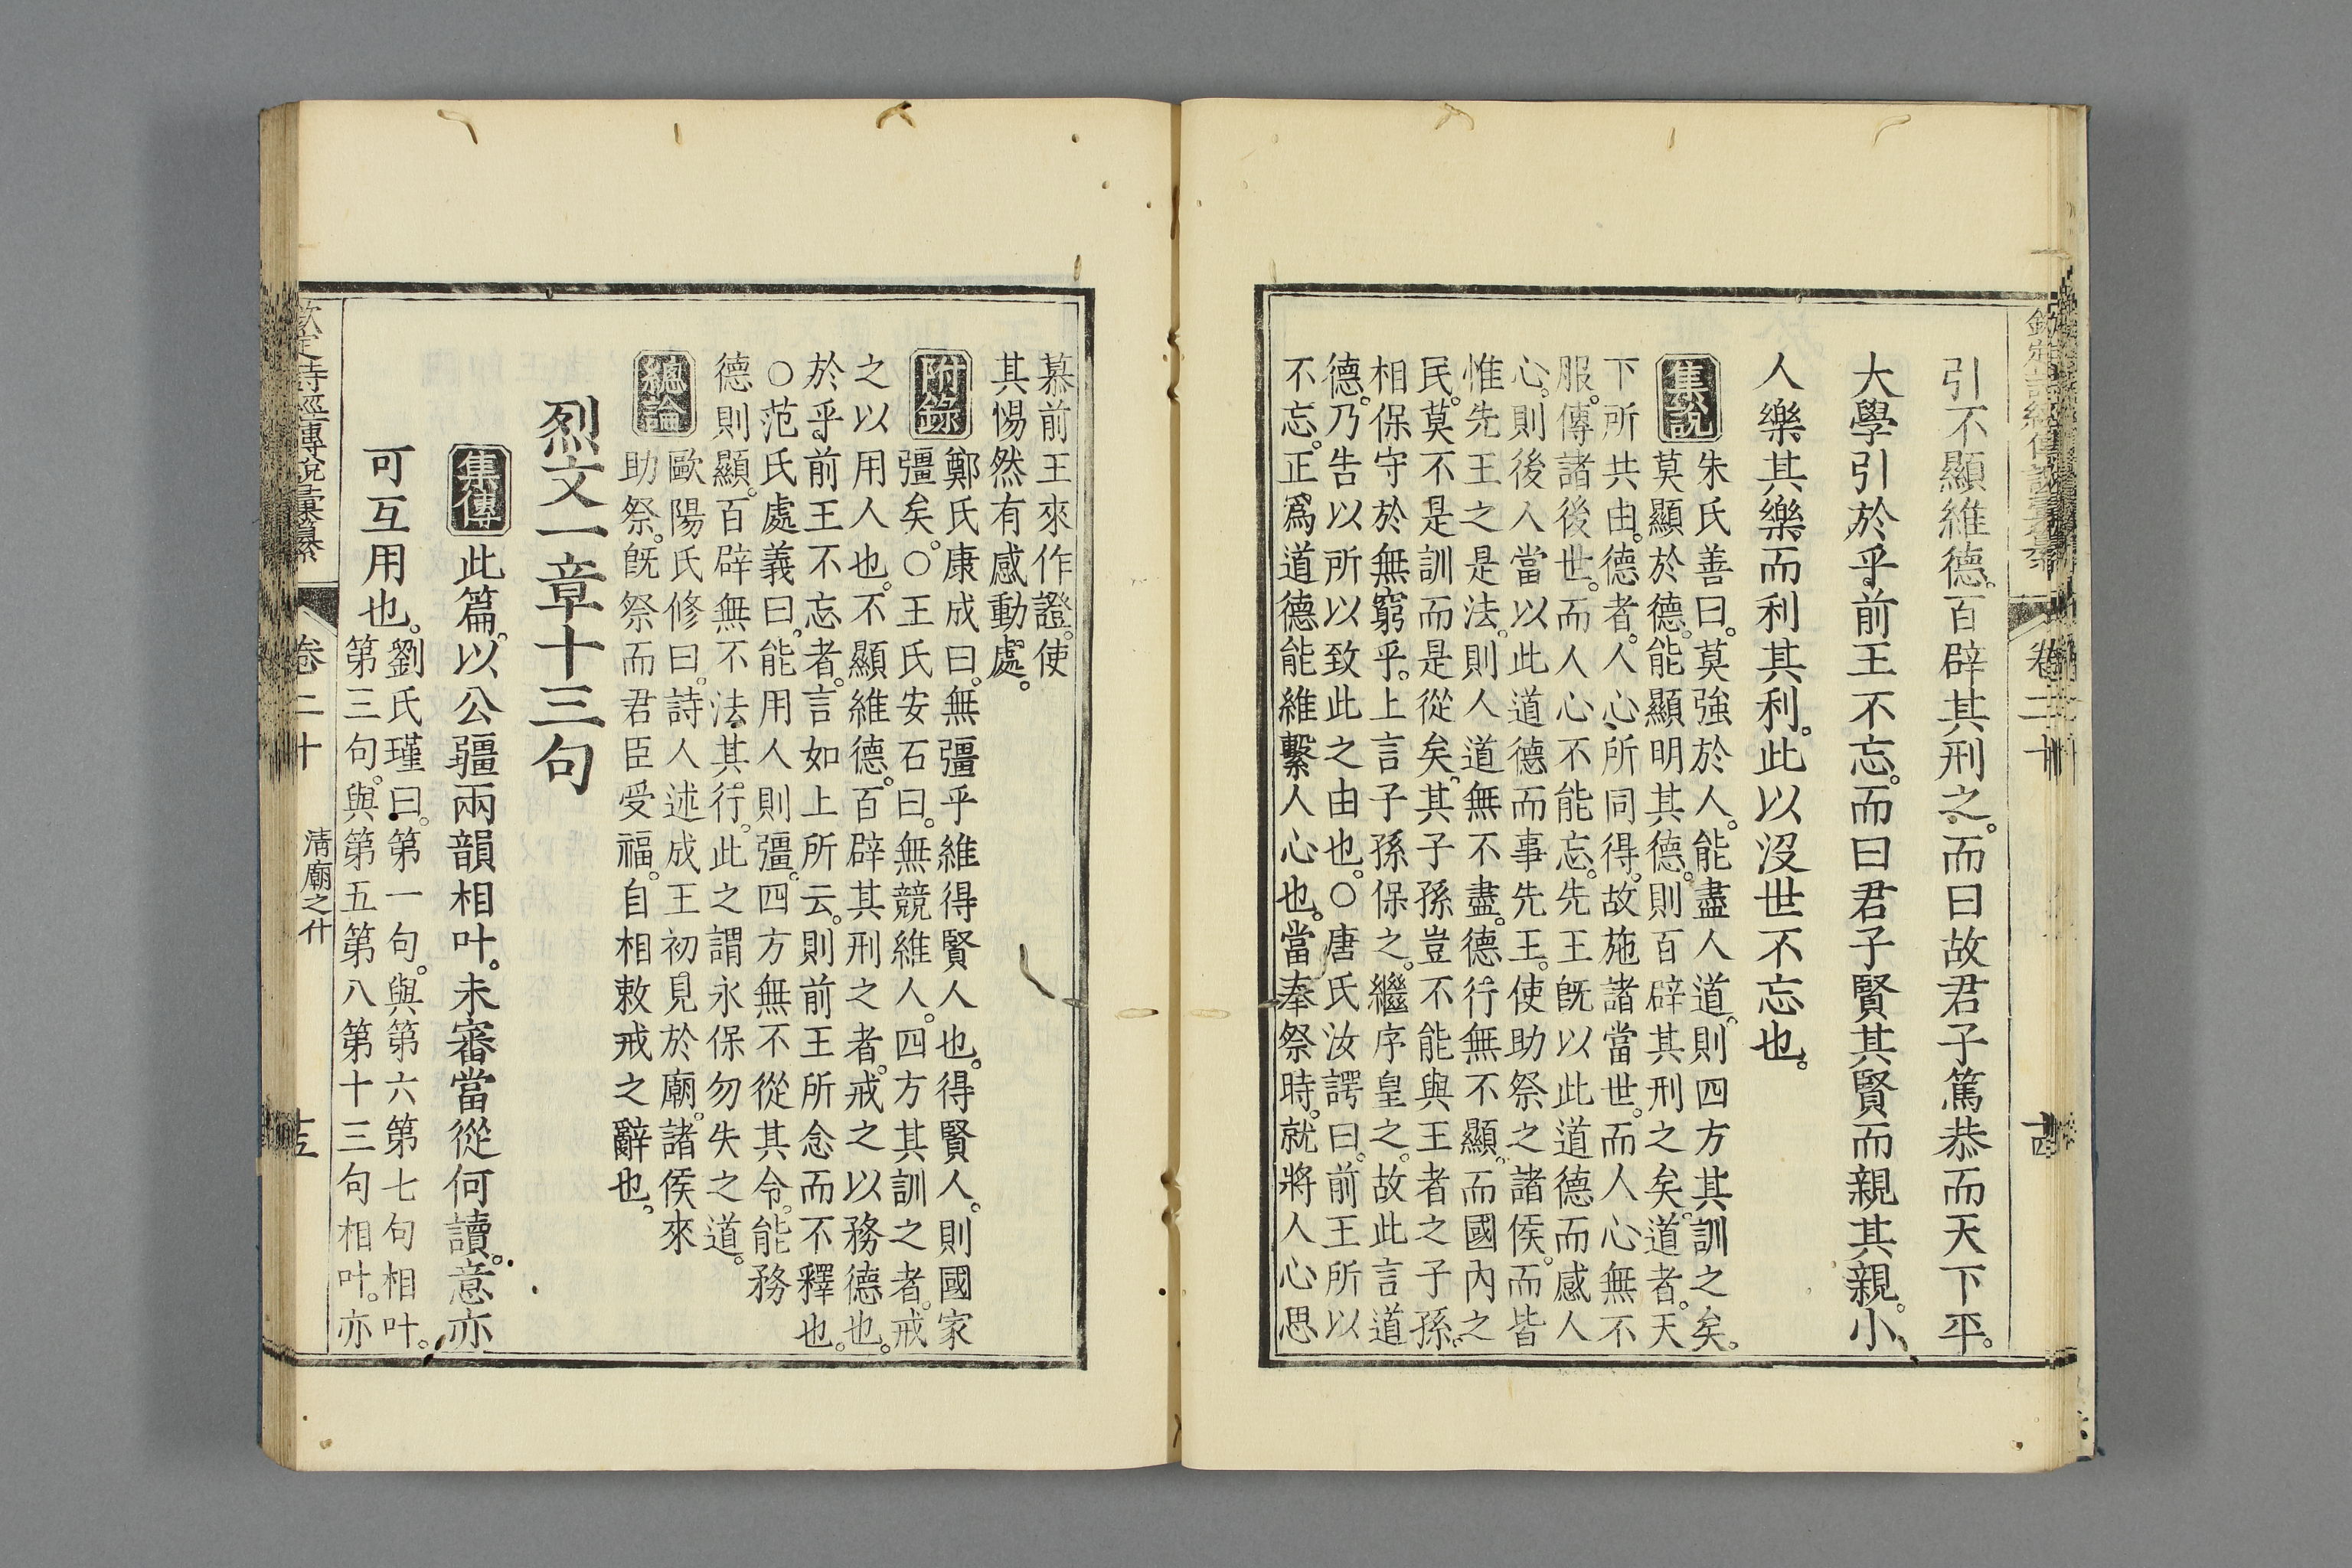 欽定詩經傳說彙纂 卷二十
引不顯維德。百辟其刑之。而曰故君子篤恭而天下平。
大學引於乎前王不忘。而曰君子賢其賢而親其親。小
人樂其樂而利其利。此以沒世不忘也。
集說
朱氏善曰。莫強於人。能盡人道。則四方其訓之矣。
莫顯於德。能顯明其德。則百辟其刑之矣。道者。天
下所共由。德者。人心所同得。故施諸當世。而人心無不
服。傳諸後世。而人心不能忘。先王旣以此道德而感人
心。則後人當以此道德而事先王。使助祭之諸侯。而皆
惟先王之是法。則人道無不盡。德行無不顯。而國內之
民。莫不是訓而是從矣。其子孫豈不能與王者之子孫。
相保守於無窮乎。上言子孫保之。繼序皇之。故此言道
德。乃告以所以致此之由也。○唐氏汝諤曰。前王所以
不忘。正爲道德能維繫人心也。當奉祭時。就將人心思
慕前王來作證。使
其惕然有感動處。
附錄
鄭氏康成曰。無彊乎維得賢人也。得賢人。則國家
彊矣。○王氏安石曰。無競維人。四方其訓之者。戒
之以用人也。不顯維德。百辟其刑之者。戒之以務德也。
於乎前王不忘者。言如上所云。則前王所念而不釋也。
○范氏處義曰。能用人則彊。四方無不從其令。能務
德則顯。百辟無不法其行。此之謂永保勿失之道。
總論
歐陽氏修曰。詩人述成王初見於廟。諸侯來
助祭。旣祭而君臣受福。自相敕戒之辭也。
烈文一章十三句
集傳
此篇。以公疆兩韻相叶。未審當從何讀。意亦
可互用也。
劉氏瑾曰。第一句。與第六第七句相叶。
第三句。與第五第八第十三句相叶。亦
欽定詩經傳說彙纂 卷二十 清廟之什